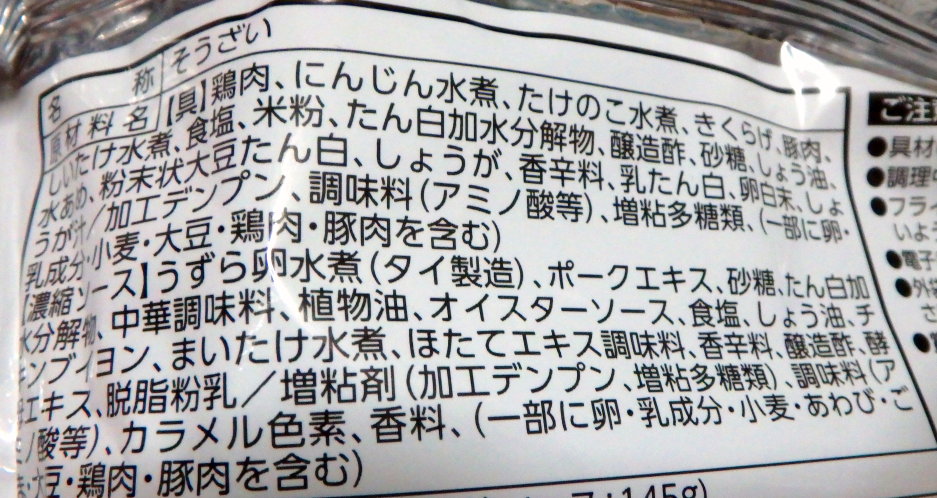 名称 そうざい
原材料名 【具】鶏肉、にんじん水煮、たけのこ水煮、きくらげ、豚肉、
しいたけ水煮、食塩、米粉、たん白加水分解物、醸造酢、砂糖、しょう油、
水あめ、粉末状大豆たん白、しょうが、香辛料、乳たん白、卵白末、しょ
うが汁／加工デンプン、調味料(アミノ酸等)、増粘多糖類、(一部に卵・
乳成分・小麦・大豆・鶏肉・豚肉を含む)
【濃縮ソース】うずら卵水煮(タイ製造)、ポークエキス、砂糖、たん白加
水分解物、中華調味料、植物油、オイスターソース、食塩、しょう油、チ
キンブイヨン、まいたけ水煮、ほたてエキス調味料、香辛料、醸造酢、酵
母エキス、脱脂粉乳／増粘剤(加工デンプン、増粘多糖類)、調味料(ア
ミノ酸等)、カラメル色素、香料、(一部に卵・乳成分・小麦・あわび・ご
ま・大豆・鶏肉・豚肉を含む)
:145g)
ご注
●具材
●調理
●フライ
いよう
●電子
●外袋